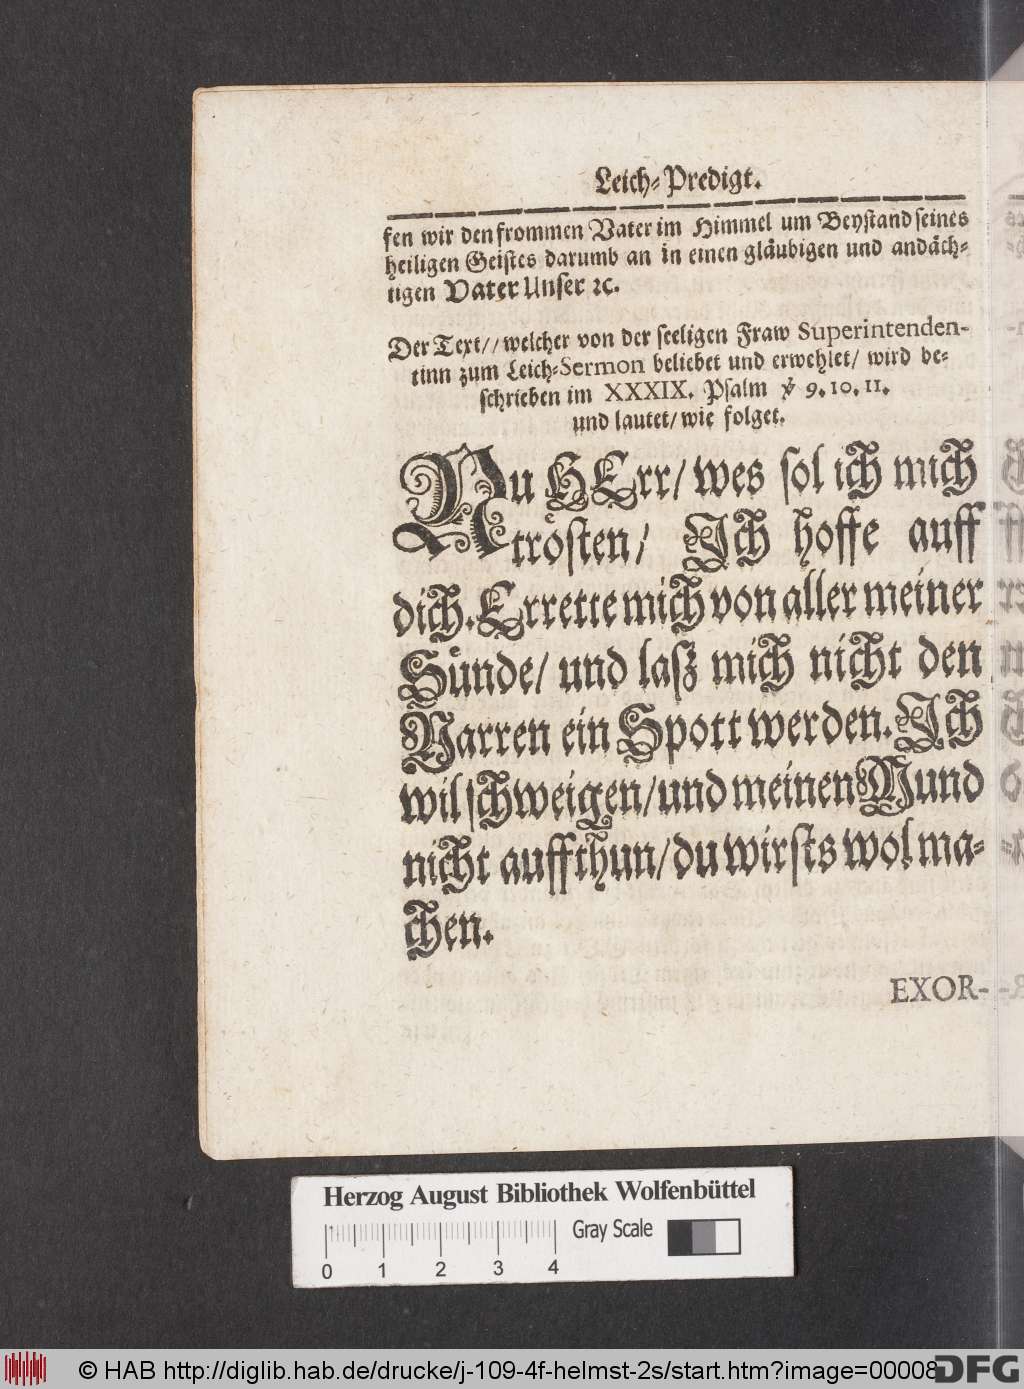 Leich-Predigt.
fen wir den frommen Vater im Himmel um Beystand seines
heiligen Geistes darumb an in einen gläubigen und andäch-
tigen Vater Unser ꝛc.
Der Text // welcher von der seeligen Fraw Superintenden-
tinn zum Leich-Sermon beliebet und erwehlet / wird be-
schrieben im XXXIX. Psalm ℣ 9. 10. 11.
und lautet / wie folget.
NU HErr / wes sol ich mich
trösten / Ich hoffe auff
dich. Errette mich von aller meiner
Sünde / und laß mich nicht den
Narren ein Spott werden. Ich
wil schweigen / und meinen Mund
nicht auffthun / du wirsts wol ma-
chen.
EXOR-
Herzog August Bibliothek Wolfenbüttel
Gray Scale
0 1 2 3 4
© HAB http://diglib.hab.de/drucke/j-109-4f-helmst-2s/start.htm?image=00008
DFG